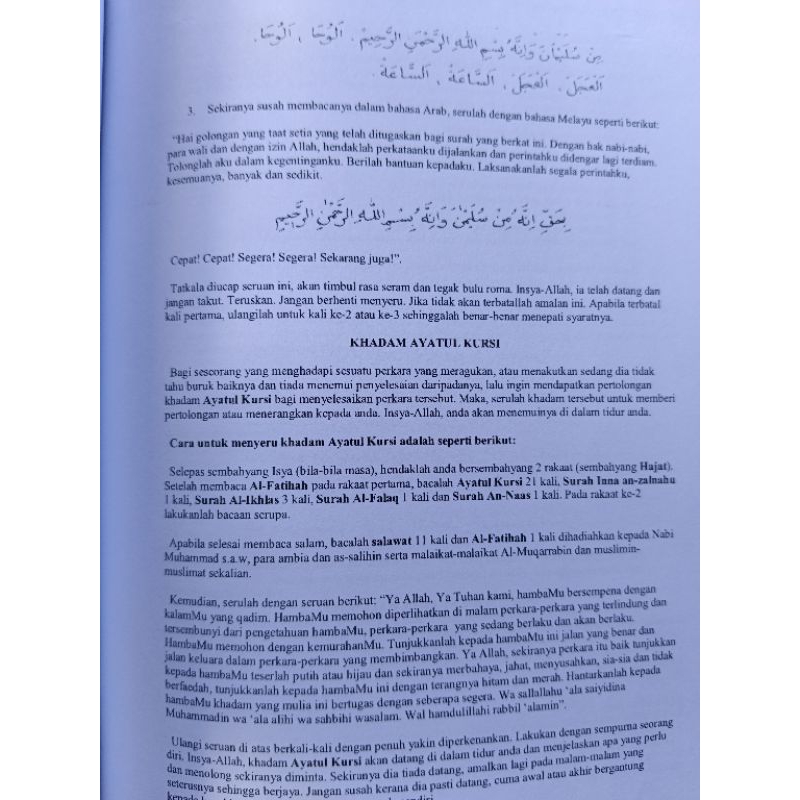 مِنْ سُلَيْمَانَ وَإِنَّهُ بِسْمِ اللهِ الرَّحْمٰنِ الرَّحِيْمِ . اَلْوَحَا ، اَلْوَحَا .
اَلْعَجَلَ . اَلْعَجَلَ ، اَلسَّاعَةُ ، اَلسَّاعَةُ .
3. Sekiranya susah membacanya dalam bahasa Arab, serulah dengan bahasa Melayu seperti berikut:
“Hai golongan yang taat setia yang telah ditugaskan bagi surah yang berkat ini. Dengan hak nabi-nabi,
para wali dan dengan izin Allah, hendaklah perkataanku dijalankan dan perintahku didengar lagi terdiam.
Tolonglah aku dalam kegentinganku. Berilah bantuan kepadaku. Laksanakanlah segala perintahku,
kesemuanya, banyak dan sedikit.
بِحَقِّ اِنَّهُ مِنْ سُلَيْمٰنَ وَاِنَّهُ بِسْمِ اللهِ الرَّحْمٰنِ الرَّحِيْمِ
Cepat! Cepat! Segera! Segera! Sekarang juga!”.
Tatkala diucap seruan ini, akan timbul rasa seram dan tegak bulu roma. Insya-Allah, ia telah datang dan
jangan takut. Teruskan. Jangan berhenti menyeru. Jika tidak akan terbatallah amalan ini. Apabila terbatal
kali pertama, ulangilah untuk kali ke-2 atau ke-3 sehinggalah benar-benar menepati syaratnya.
KHADAM AYATUL KURSI
Bagi seseorang yang menghadapi sesuatu perkara yang meragukan, atau menakutkan sedang dia tidak
tahu buruk baiknya dan tiada menemui penyelesaian daripadanya, lalu ingin mendapatkan pertolongan
khadam Ayatul Kursi bagi menyelesaikan perkara tersebut. Maka, serulah khadam tersebut untuk memberi
pertolongan atau menerangkan kepada anda. Insya-Allah, anda akan menemuinya di dalam tidur anda.
Cara untuk menyeru khadam Ayatul Kursi adalah seperti berikut:
Selepas sembahyang Isya (bila-bila masa), hendaklah anda bersembahyang 2 rakaat (sembahyang Hajat).
Setelah membaca Al-Fatihah pada rakaat pertama, bacalah Ayatul Kursi 21 kali, Surah Inna an-zalnahu
1 kali, Surah Al-Ikhlas 3 kali, Surah Al-Falaq 1 kali dan Surah An-Naas 1 kali. Pada rakaat ke-2
lakukanlah bacaan serupa.
Apabila selesai membaca salam, bacalah salawat 11 kali dan Al-Fatihah 1 kali dihadiahkan kepada Nabi
Muhammad s.a.w, para ambia dan as-salihin serta malaikat-malaikat Al-Muqarrabin dan muslimin-
muslimat sekalian.
Kemudian, serulah dengan seruan berikut: “Ya Allah, Ya Tuhan kami, hambaMu bersempena dengan
kalamMu yang qadim. HambaMu memohon diperlihatkan di malam perkara-perkara yang terlindung dan
tersembunyi dari pengetahuan hambaMu, perkara-perkara yang sedang berlaku dan akan berlaku.
HambaMu memohon dengan kemurahanMu. Tunjukkanlah kepada hambaMu ini jalan yang benar dan
jalan keluara dalam perkara-perkara yang membimbangkan. Ya Allah, sekiranya perkara itu baik tunjukkan
kepada hambaMu teserlah putih atau hijau dan sekiranya merbahaya, jahat, menyusahkan, sia-sia dan tidak
berfaedah, tunjukkanlah kepada hambaMu ini dengan terangnya hitam dan merah. Hantarkanlah kepada
hambaMu khadam yang mulia ini bertugas dengan seberapa segera. Wa sallallahu ‘ala saiyidina
Muhammadin wa ‘ala alihi wa sahbihi wasalam. Wal hamdulillahi rabbil ‘alamin”.
Ulangi seruan di atas berkali-kali dengan penuh yakin diperkenankan. Lakukan dengan sempurna seorang
diri. Insya-Allah, khadam Ayatul Kursi akan datang di dalam tidur anda dan menjelaskan apa yang perlu
dan menolong sekiranya diminta. Sekiranya dia tiada datang, amalkan lagi pada malam-malam yang
seterusnya sehingga berjaya. Jangan susah kerana dia pasti datang, cuma awal atau akhir bergantung